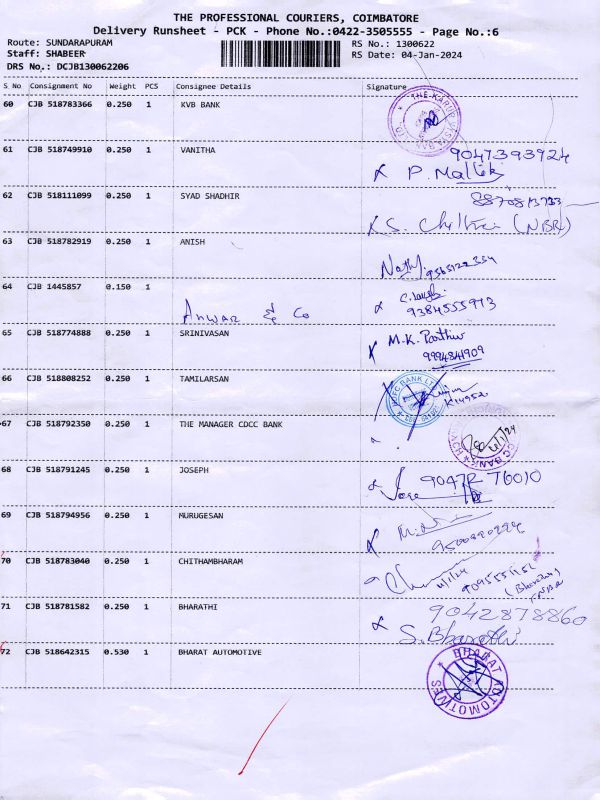 THE PROFESSIONAL COURIERS, COIMBATORE
Delivery Runsheet - PCK - Phone No.:0422-3505555 - Page No.:6
Route: SUNDARAPURAM
RS No.: 1300622
Staff: SHABEER
RS Date: 04-Jan-2024
DRS No.: DCJB130062206
S No Consignment No Weight PCS Consignee Details Signature
60 CJB 518783366 0.250 1 KVB BANK
61 CJB 518749910 0.250 1 VANITHA
9047393924
P. Mallik
62 CJB 518111099 0.250 1 SYAD SHADHIR
S. (NBR)
63 CJB 518782919 0.250 1 ANISH
64 CJB 1445857 0.150 1
ANWAR & Co
9384555973
65 CJB 518774888 0.250 1 SRINIVASAN
M.K. Parthiv
9994841909
66 CJB 518808252 0.250 1 TAMILARSAN
BANK LTD
67 CJB 518792350 0.250 1 THE MANAGER CDCC BANK
BANK
68 CJB 518791245 0.250 1 JOSEPH
Jose
69 CJB 518794956 0.250 1 MURUGESAN
70 CJB 518783040 0.250 1 CHITHAMBHARAM
71 CJB 518781582 0.250 1 BHARATHI
9042878860
S. Bharathi
72 CJB 518642315 0.530 1 BHARAT AUTOMOTIVE
BHARAT AUTOMOTIVES